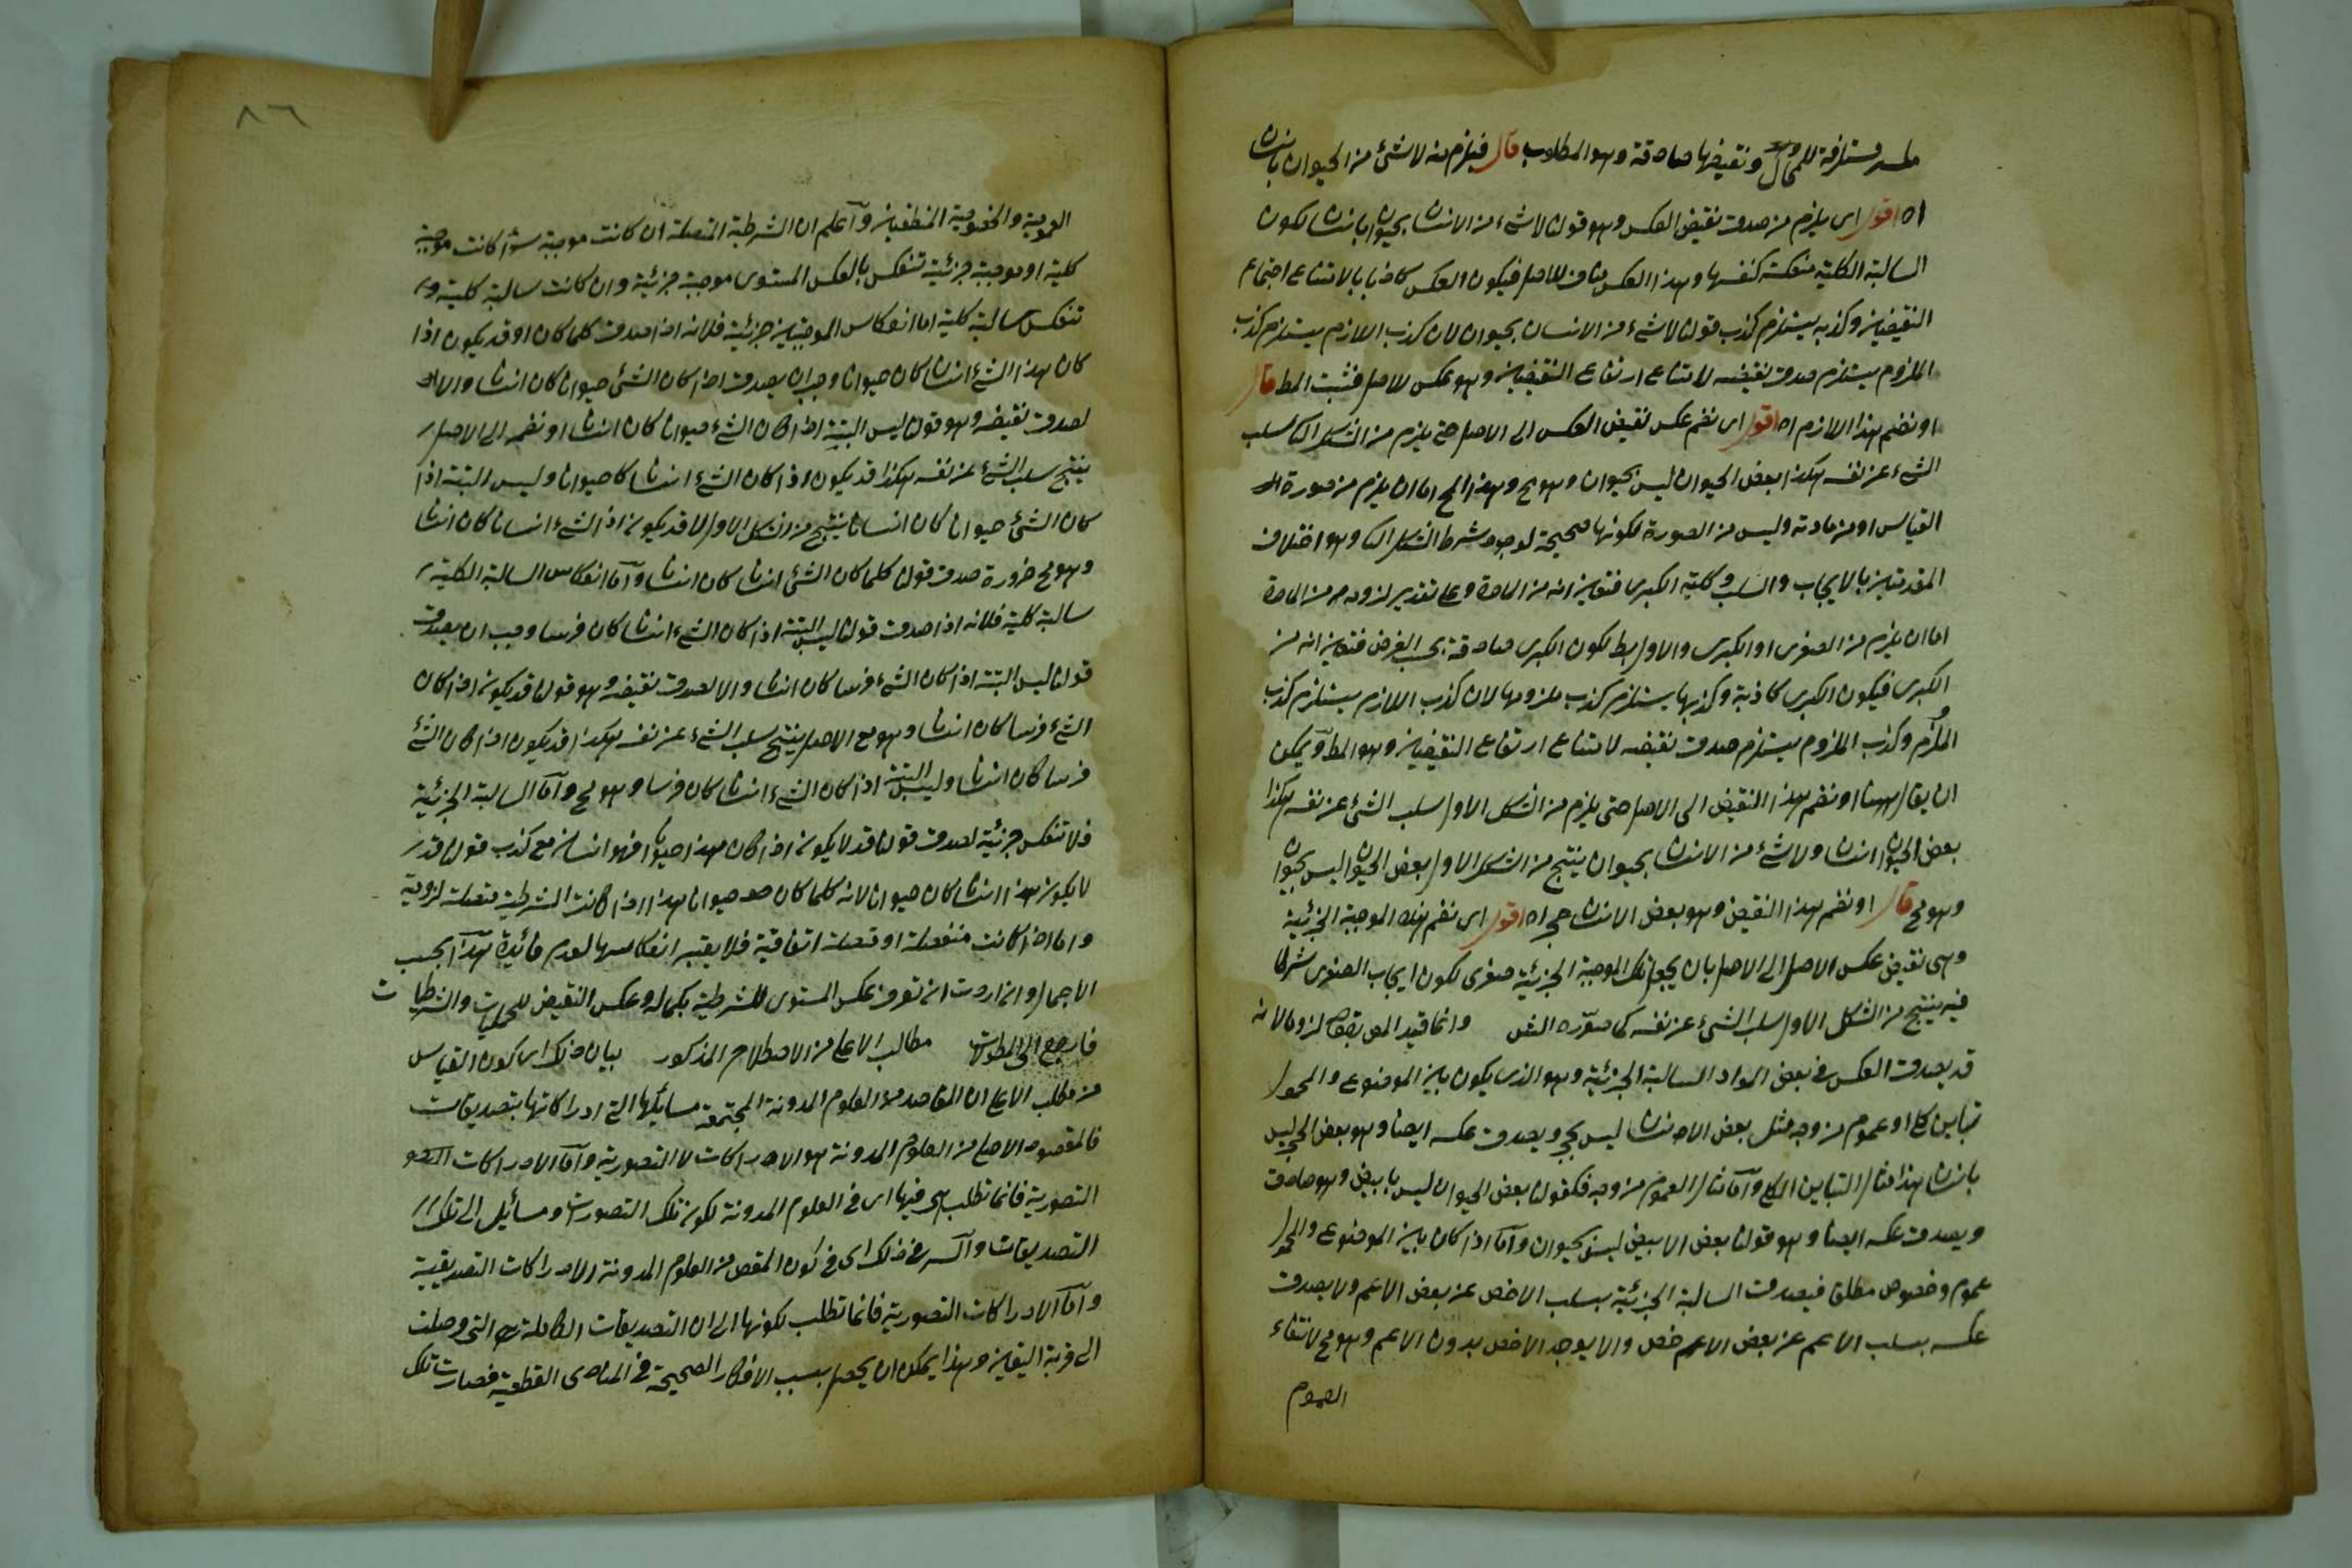 مستلزمة للمحال ونقيضها صادقة وهو المطلوب قال فيلزم منه لا شئ من الحيوان بانسان
اه اقول اى يلزم من صدق نقيض العكس وهو قولنا لا شئ من الانسان بحيوان بانسان لكون
السالبة الكلية منعكسة كنفسها وهذا العكس مناف للاصل فيكون العكس كاذبا بالامتناع اجتماع
النقيضين وكذبه يستلزم كذب قولنا لا شئ من الانسان بحيوان لان كذب اللازم يستلزم كذب
الملزوم يستلزم صدق نقيضه لامتناع ارتفاع النقيضين وهو عكس للاصل فثبت المط قال
او نضم هذا اللازم اه اقول اى نضم عكس نقيض العكس الى الاصل حتى يلزم من الشكل سلب
الشئ عن نفسه هكذا بعض الحيوان ليس بحيوان وهو مح وهذا المح اما ان يلزم من صورة
القياس او من مادته وليس من الصورة لكونها صحيحة لوجود شرط الشكل وهو اختلاف
المقدمتين بالايجاب والسلب وكلية الكبرى فتعين انه من المادة وعلى تقدير لزومه من المادة
اما ان يلزم من الصغرى او الكبرى والاول بط لكون الكبرى صادقة بحسب الفرض فتعين انه من
الكبرى فيكون الكبرى كاذبة وكذبها يستلزم كذب ملزومها لان كذب اللازم يستلزم كذب
الملزوم وكذب الملزوم يستلزم صدق نقيضه لامتناع ارتفاع النقيضين وهو المط ويمكن
ان يقال ههنا او نضم هذا النقيض الى الاصل حتى يلزم من الشكل الاول سلب الشئ عن نفسه هكذا
بعض الحيوان انسان ولا شئ من الانسان بحيوان ينتج من الشكل الاول بعض الحيوان ليس بحيوان
وهو مح قال او نضم هذا النقيض وهو بعض الانسان حجر اه اقول اى نضم هذه الموجبة الجزئية
وهى نقيض عكس الاصل الى الاصل بان يجعل تلك الموجبة الجزئية صغرى لكون ايجاب الصغرى شرطا
فيه ينتج من الشكل الاول سلب الشئ عن نفسه كما صوره الش وانما قيد المص بقوله لزوما لانه
قد يصدق العكس فى بعض المواد السالبة الجزئية وهو الذى يكون بين الموضوع والمحمول
تباين كلى او عموم من وجه مثل بعض الانسان ليس بحجر ويصدق عكسه ايضا وهو بعض الحجر ليس
بانسان هذا مثال التباين الكلى واما مثال العموم من وجه فكقولنا بعض الحيوان ليس بابيض وهو صادق
ويصدق عكسه ايضا وهو قولنا بعض الابيض ليس بحيوان واما اذا كان بين الموضوع والمحمول
عموم وخصوص مطلق فيصدق السالبة الجزئية بسلب الاخص عن بعض الاعم ولا يصدق
عكسه بسلب الاعم عن بعض الاخص والا يوجد الاخص بدون الاعم وهو مح لانتفاء
العموم
٨٦
العمومية والخصوصية المنطقيان واعلم ان الشرطية المتصلة ان كانت موجبة سواء كانت موجبة
كلية او موجبة جزئية تنعكس بالعكس المستوى موجبة جزئية وان كانت سالبة كلية
تنعكس سالبة كلية اما انعكاس الموجبتين جزئية فلانه اذا صدق كلما كان او قد يكون اذا
كان هذا الشئ انسانا كان حيوانا وجب ان يصدق اذا كان الشئ حيوانا كان انسانا والا
لصدق نقيضه وهو قولنا ليس البتة اذا كان الشئ حيوانا كان انسانا او نضم الى الاصل
ينتج سلب الشئ عن نفسه هكذا قد يكون اذا كان الشئ انسانا كان حيوانا وليس البتة اذا
كان الشئ حيوانا كان انسانا ينتج من الشكل الاول لا قد يكون اذا الشئ انسانا كان انسانا
وهو مح ضرورة صدق قولنا كلما كان الشئ انسانا كان انسانا واما انعكاس السالبة الكلية
سالبة كلية فلانه اذا صدق قولنا ليس البتة اذا كان الشئ انسانا كان فرسا وجب ان يصدق
قولنا ليس البتة اذا كان الشئ فرسا كان انسانا والا لصدق نقيضه وهو قولنا قد يكون اذا كان
الشئ فرسا كان انسانا وهو مع الاصل ينتج سلب الشئ عن نفسه هكذا قد يكون اذا كان الشئ
فرسا كان انسانا وليس البتة اذا كان الشئ انسانا كان فرسا وهو مح واما السالبة الجزئية
فلا تنعكس جزئية لصدق قولنا قد لا يكون اذا كان هذا حيوانا فهو انسان مع كذب قولنا قد
لا يكون هذا انسانا كان حيوانا لانه كلما كان حيوانا هذا اذا كانت الشرطية متصلة لزومية
واما اذا كانت منفصلة او متصلة اتفاقية فلا يعتبر انعكاسها لعدم فائدة هذا بحسب
الاجمال وان اردت ان تعرف عكس المستوى للشرطية بكماله وعكس النقيض للحمليات والشرطيات
فارجع الى المطولات مطالب الاعلى من الاصطلاح المذكور بيان ذلك اى كون القياس
من مطلب الاعلى ان المقاصد من العلوم المدونة المجتمعة مسائلها التى ادراكاتها تصديقات
فالمقصود الاصلى من العلوم المدونة هو الادراكات لا التصورية واما الادراكات
التصورية فانما تطلب هى فيها اى فى العلوم المدونة لكون تلك التصورات وسائل الى تلك
التصديقات والسر فى ذلك اى فى كون المقص من العلوم المدونة الادراكات التصديقية
واما الادراكات التصورية فانما تطلب لكونها الى ان التصديقات الكاملة هى التى وصلت
الى مرتبة اليقين وهذا يمكن ان يحصل بسبب الافكار الصحيحة فى المبادى القطعية فصارت تلك